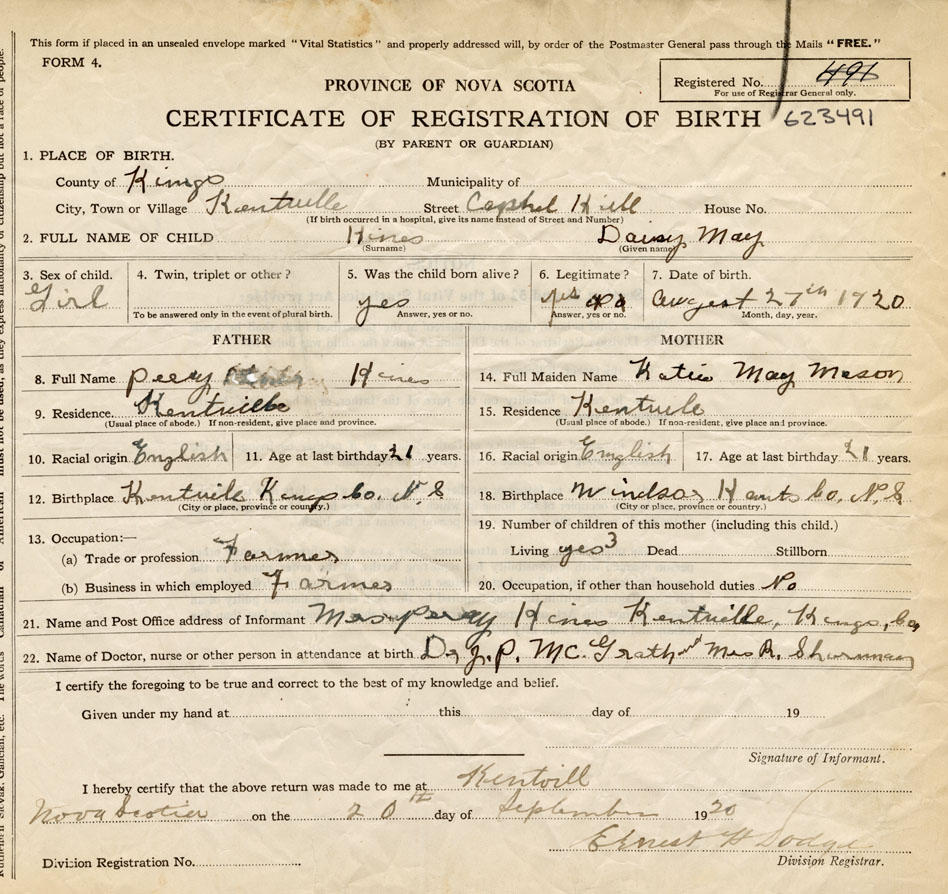 This form if placed in an unsealed envelope marked "Vital Statistics" and properly addressed will, by order of the Postmaster General pass through the Mails "FREE."
FORM 4.
Registered No. 496
For use of Registrar General only.
PROVINCE OF NOVA SCOTIA
CERTIFICATE OF REGISTRATION OF BIRTH 623491
(BY PARENT OR GUARDIAN)
1. PLACE OF BIRTH.
County of Kings Municipality of
City, Town or Village Kentville Street Hill House No.
(If birth occurred in a hospital, give its name instead of Street and Number)
2. FULL NAME OF CHILD Hines Daisy May
(Surname) (Given name)
3. Sex of child. 4. Twin, triplet or other? 5. Was the child born alive? 6. Legitimate? 7. Date of birth.
Girl yes yes August 27th 1920
To be answered only in the event of plural birth. Answer, yes or no. Answer, yes or no. Month, day, year.
FATHER MOTHER
8. Full Name Percy Hines 14. Full Maiden Name Katie May Mason
9. Residence. Kentville 15. Residence Kentvile
(Usual place of abode.) If non-resident, give place and province. (Usual place of abode.) If non-resident, give place and province.
10. Racial origin English 11. Age at last birthday 21 years. 16. Racial origin English 17. Age at last birthday 21 years.
12. Birthplace Kentvile Kings Co. N S 18. Birthplace Windsor Hants Co. N.S
(City or place, province or country.) (City or place, province or country.)
19. Number of children of this mother (including this child.)
13. Occupation:—
(a) Trade or profession Farmer Living yes 3 Dead Stillborn
(b) Business in which employed Farmer 20. Occupation, if other than household duties No
21. Name and Post Office address of Informant Mrs Percy Hines Kentville, Kings, Co,
22. Name of Doctor, nurse or other person in attendance at birth Dr J. P. McGrath and Mrs R. Sharman
I certify the foregoing to be true and correct to the best of my knowledge and belief.
Given under my hand at this day of 19
Signature of Informant.
I hereby certify that the above return was made to me at Kentvill
Nova Scotia on the 20th day of September 1920
Ernest H Dodge
Division Registration No. Division Registrar.